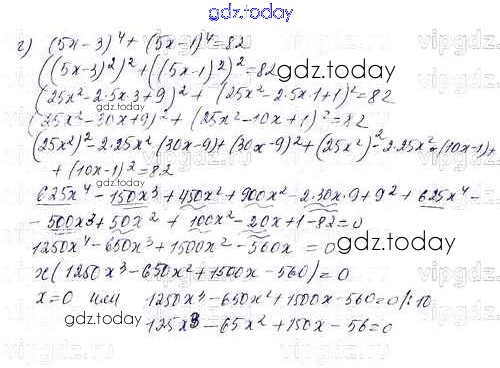 gdz.today
г) (5x-3)⁴ + (5x-1)⁴ = 82
((5x-3)²)² + ((5x-1)²)² = 82
gdz.today
(25x²-2·5x·3+9)² + (25x²-2·5x·1+1)² = 82
(25x²-30x+9)² + (25x²-10x+1)² = 82
(25x²)²-2·25x²(30x-9)+(30x-9)²+(25x²)²-2·25x²·(10x-1)+
+ (10x-1)² = 82
gdz.today
625x⁴-150x³+450x²+900x²-2·30x·9+9²+625x⁴-
-500x3+50x²+100x²-20x+1-82=0
1250x⁴-650x³+1500x²-560x =0
gdz.today
x(1250x³-650x²+1500x-560)=0
x=0 или 1250x³-650x²+1500x-560=0/:10
gdz.today
125x3-65x²+150x-56=0